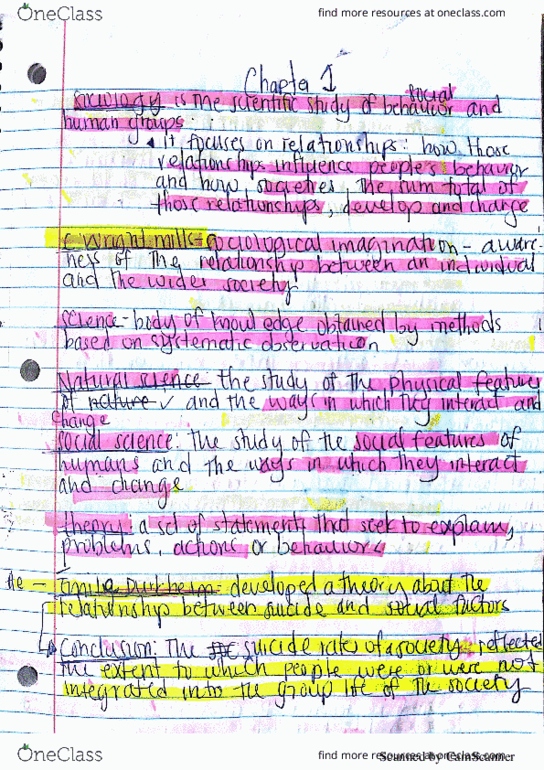 OneClass
find more resources at oneclass.com
Chapter 1
social
sociology is the scientific study of behavior and
human groups
it focuses on relationships: how those
relationships influence people's behavior
and how societies the sum total of
those relationships, develop and change
C Wright mills- sociological imagination - aware-
ness of the relationship between an individual
and the wider society
science- body of knowledge obtained by methods
based on systematic observation
Natural science- the study of the physical features
of nature and the ways in which they interact and
change
Social science: the study of the social features of
humans and the ways in which they interact
and change
theory: a set of statements that seek to explain,
problems, actions or behaviors
Emile Durkheim- developed a theory about the
relationship between suicide and social factors
Conclusion: The suicide rates of a society reflected
the extent to which people were or were not
integrated into the group life of the society
OneClass
find more resources at oneclass.com
Scanned by CamScanner